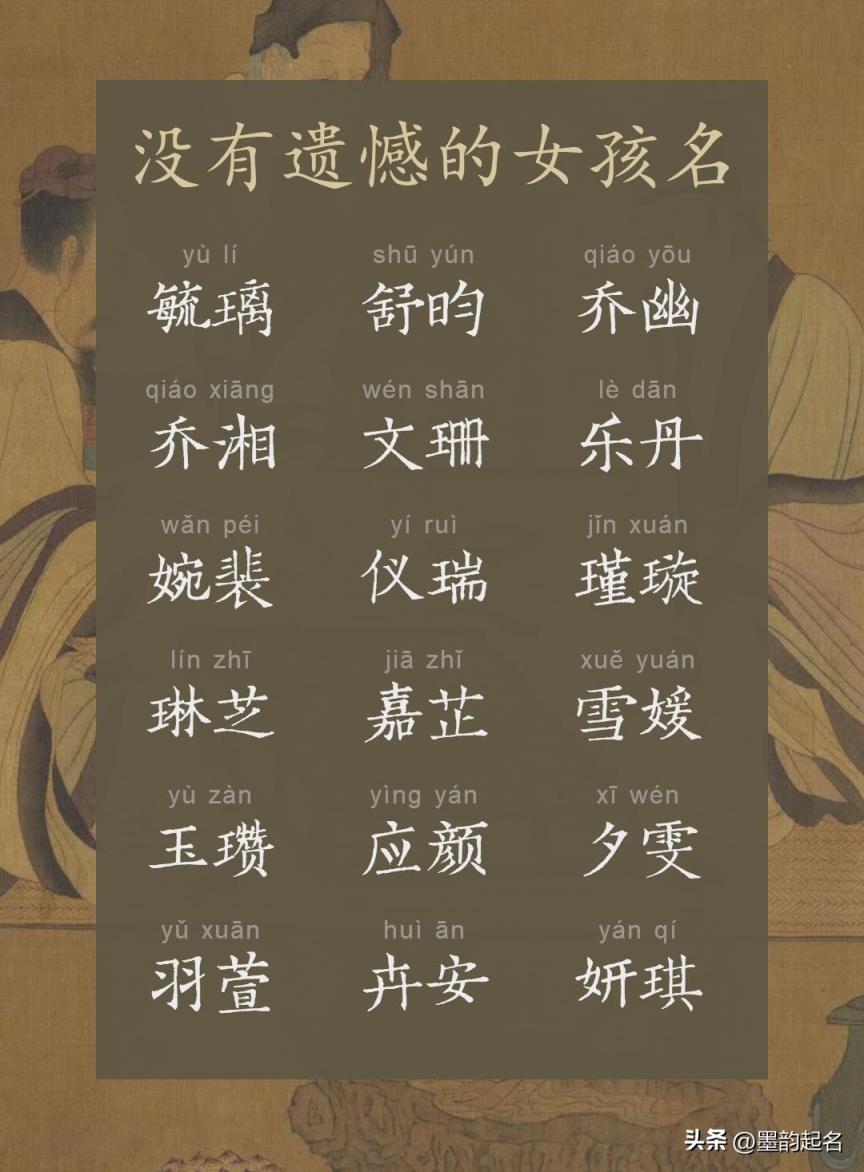 没有遗憾的女孩名
yù lí shū yún qiáo yōu
毓璃 舒昀 乔幽
qiáo xiāng wén shān lè dān
乔湘 文珊 乐丹
wǎn péi yí ruì jǐn xuán
婉裴 仪瑞 瑾璇
lín zhī jiā zhǐ xuě yuán
琳芝 嘉芷 雪媛
yù zàn yìng yán xī wén
玉瓒 应颜 夕雯
yǔ xuān huì ān yán qí
羽萱 卉安 妍琪
头条 @墨韵起名